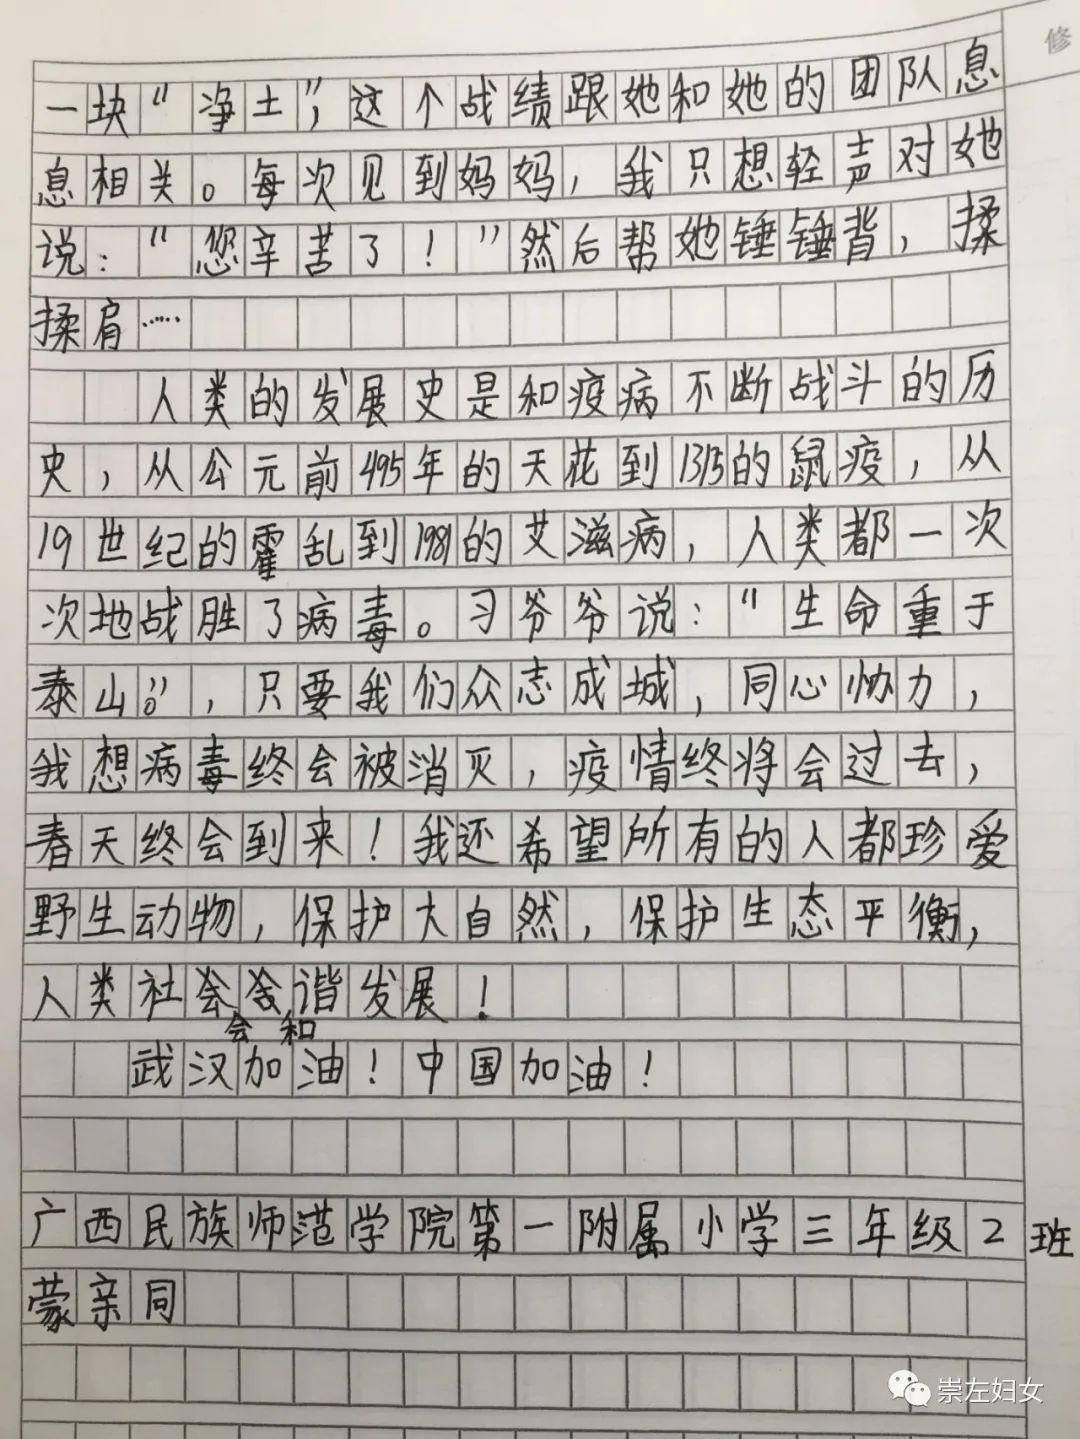 修
一块“净土”,这个战绩跟她和她的团队息
息相关。每次见到妈妈,我只想轻声对她
说:“您辛苦了!”然后帮她锤锤背,揉
揉肩……
人类的发展史是和疫病不断战斗的历
史,从公元前495年的天花到1315的鼠疫,从
19世纪的霍乱到1981的艾滋病,人类都一次
次地战胜了病毒。习爷爷说:“生命重于
泰山。”,只要我们众志成城,同心协力,
我想病毒终会被消灭,疫情终将会过去,
春天终会到来!我还希望所有的人都珍爱
野生动物,保护大自然,保护生态平衡,
人类社会和谐发展!
武汉加油!中国加油!
广西民族师范学院第一附属小学三年级2班
蒙亲同
崇左妇女